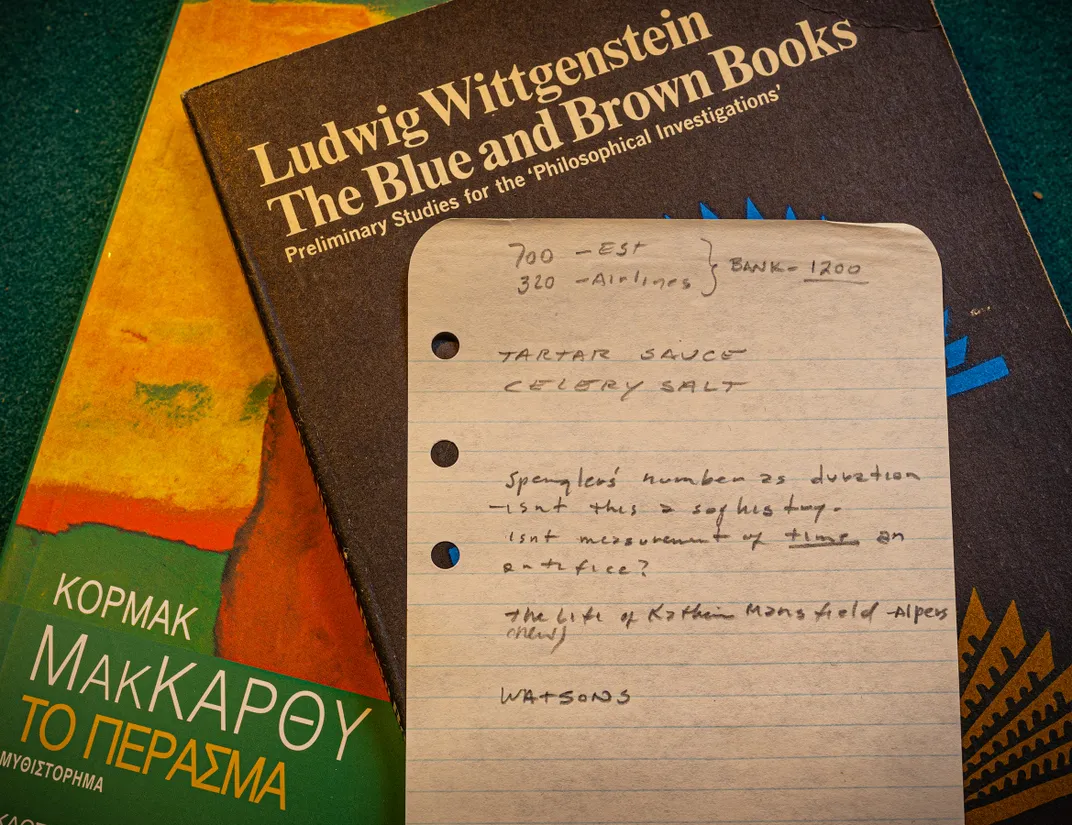 Ludwig Wittgenstein
The Blue and Brown Books
Preliminary Studies for the 'Philosophical Investigations'
700 - EST
320 - Airlines } BANK - 1200
TARTAR SAUCE
CELERY SALT
Spenglers' number as duration
- isnt this a sophistry.
isnt measurement of time an
artifice?
The Life of Mansfield - Alpers
(new)
WATSONS
ΚΟΡΜΑΚ
ΜΑΚΚΑΡΘΥ
ΤΟ ΠΕΡΑΣΜΑ
ΜΥΘΙΣΤΟΡΗΜΑ